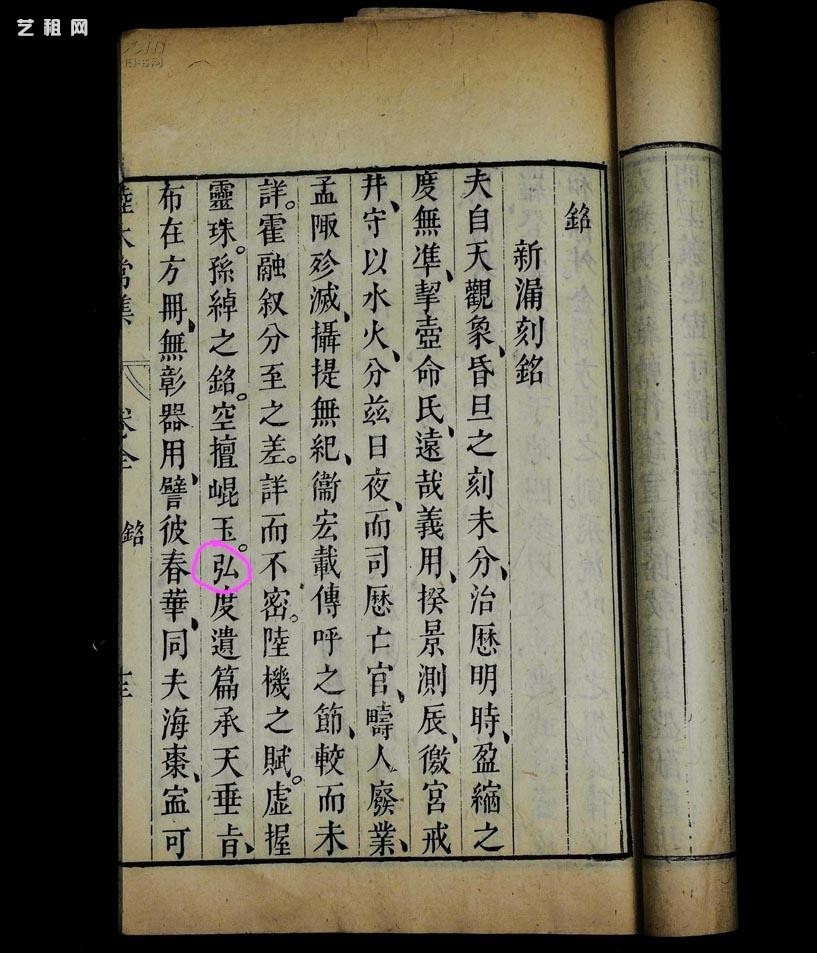 艺租网
銘
新漏刻銘
夫自天觀象、昏旦之刻未分、治曆明時、盈縮之
度無準、挈壺命氏、遠哉義用、揆景測辰、徼宮戒
井、守以水火、分玆日夜、而司曆亡官、疇人廢業、
孟陬殄滅、攝提無紀、衞宏載傳呼之節、較而未
詳。霍融叙分至之差。詳而不密。陸機之賦。虚握
靈珠。孫綽之銘。空擅崐玉。弘度遺篇承天垂旨、
布在方冊、無彰器用、譬彼春華、同夫海棗、寍可
陸太常集
卷全
銘